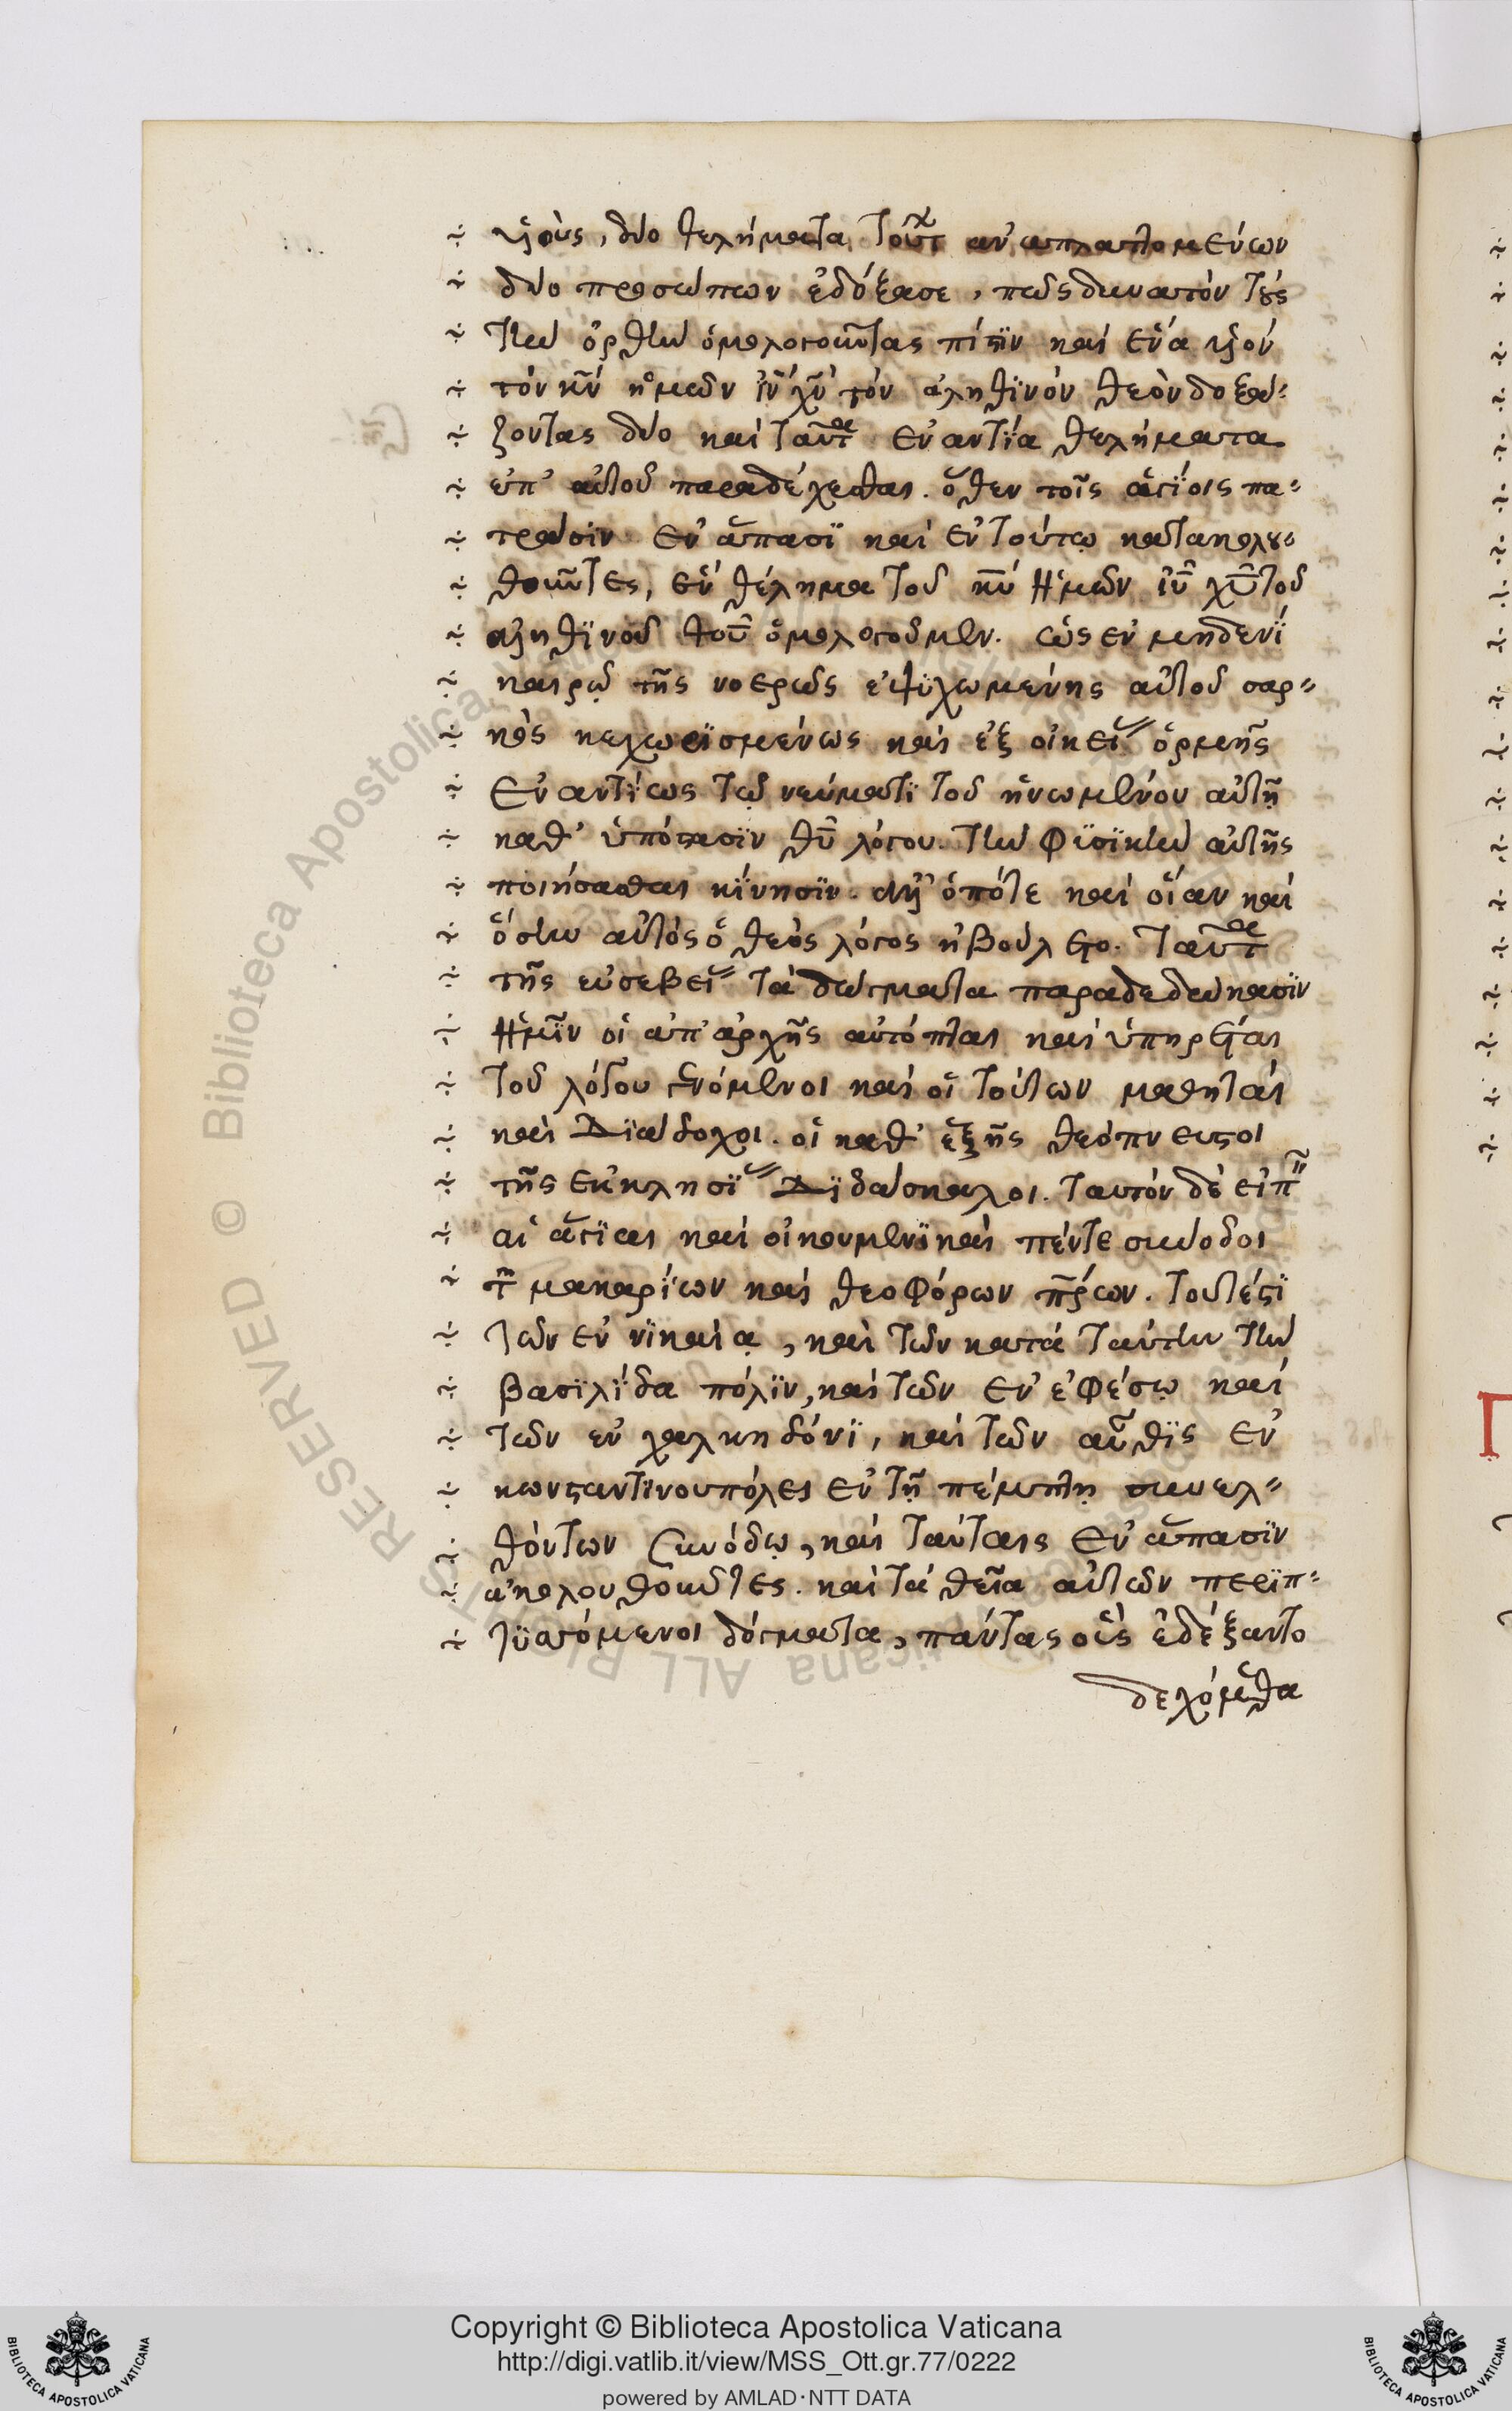 υἱοὺς, δύο θελήματα τούτ(ων) ἀναπλαττομένων
δύο προσώπων ἐδόξασε, πῶς δυνατὸν τοὺς
τὴν ὀρθὴν ὁμολογοῦντας πίστϊν καὶ ἕνα υἱὸν
τὸν κ̅ν̅ ἡμῶν ι̅ν̅ χ̅ν̅ τὸν ἀληθϊνὸν θεὸν δοξά-
ζοντας δύο καὶ ταῦτα ἐναντΐα θελήματα
ἐπ' αὐτοῦ παραδέχεσθαι. ὅθεν τοῖς ἁγΐοις πα-
τράσϊν ἐν ἅπασϊ καὶ ἐν τούτῳ κατακολου-
θοῦντες, ἓν θέλημα τοῦ κ̅υ̅ ἡμῶν ι̅υ̅ χ̅υ̅ τοῦ
ἀληθϊνοῦ θ̅υ̅ ὁμολογοῦμεν. ὡς ἐν μηδενϊ
καιρῷ τῆς νοερῶς ἐψϋχωμένης αὐτοῦ σαρ-
κὸς κεχωρϊσμένως καὶ ἐξ οἰκεί(ας) ὁρμῆς
ἐναντΐως τῷ νεύματϊ τοῦ ἡνωμένου αὐτῇ
καθ' ὑπόστασϊν θ̅υ̅ λόγου. τὴν φϋσϊκὴν αὐτῆς
ποιήσασθαι κΐνησϊν. ἀλλ' ὁπότε καὶ οἵαν καὶ
ὅσην αὐτὸς ὁ θεὸς λόγος ἠβούλετο. ταῦτα
τῆς εὐσεβεί(ας) τὰ δώγματα παραδεδώκασϊν
ἡμῖν οἱ ἀπ' ἀρχῆς αὐτόπται καὶ ὑπηρέται
τοῦ λόγου γενόμενοι καὶ οἱ τούτων μαθηταὶ
καὶ Δϊάδοχοι. οἱ καθ' ἑξῆς θεόπνευστοι
τῆς ἐκκλησΐ(ας) Δϊδάσκαλοι. ταυτὸν δὲ εἰπ(εῖν)
αἱ ἅγϊαι καὶ οἰκουμενϊκαὶ πέντε σύνοδοι
τῶν μακαρΐων καὶ θεοφόρων π̅ρ̅ων. τουτέστϊ
τῶν ἐν νϊκαίᾳ, καὶ τῶν κατὰ ταύτην τὴν
βασϊλΐδα πόλϊν, καὶ τῶν ἐν ἐφέσῳ καὶ
τῶν ἐν χαλκηδόνϊ, καὶ τῶν αὖθϊς ἐν
κωνσταντϊνουπόλει ἐν τῇ πέμπτῃ συνελ-
θόντων συνόδῳ, καὶ ταύταις ἐν ἅπασϊν
ἀκολουθοῦντες. καὶ τὰ θεῖα αὐτῶν περϊπ-
τϋσσόμενοι δόγματα, πάντας οὓς ἐδέξαντο
δεχόμεθα
Copyright © Biblioteca Apostolica Vaticana
http://digi.vatlib.it/view/MSS_Ott.gr.77/0222
powered by AMLAD·NTT DATA